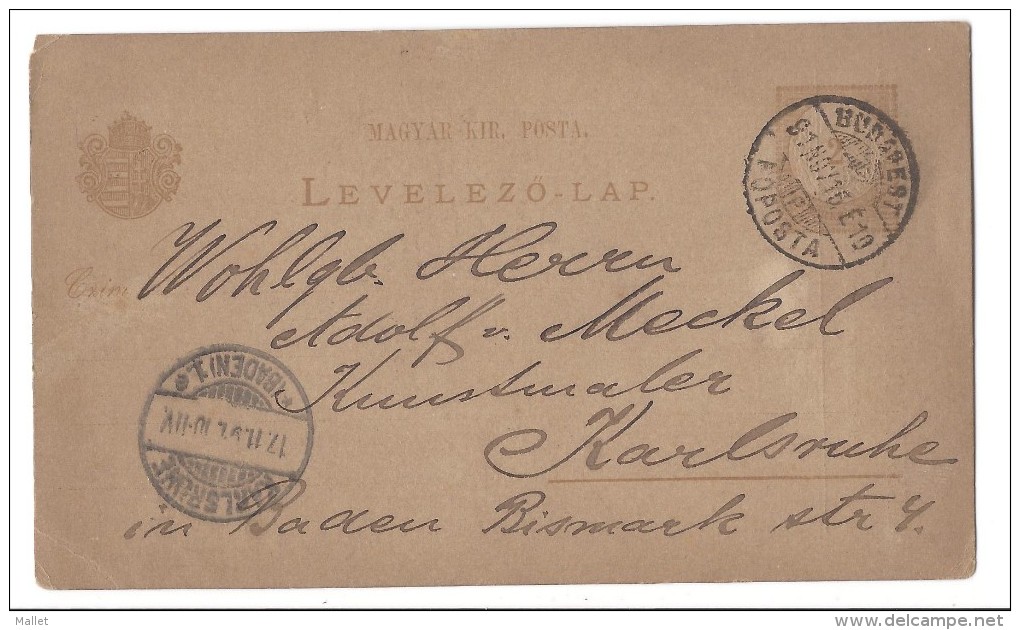 MAGYAR KIR. POSTA.
LEVELEZŐ-LAP.
BUDAPEST
FŐPOSTA
Wohlgb. Herrn
Czim
Adolf v. Meckel
Kunstmaler
Karlsruhe
in Baden Bismark str 4.
KARLSRUHE
17.11.91. 10-11V.
(BADEN) 1.
Mallet
www.delcampe.net